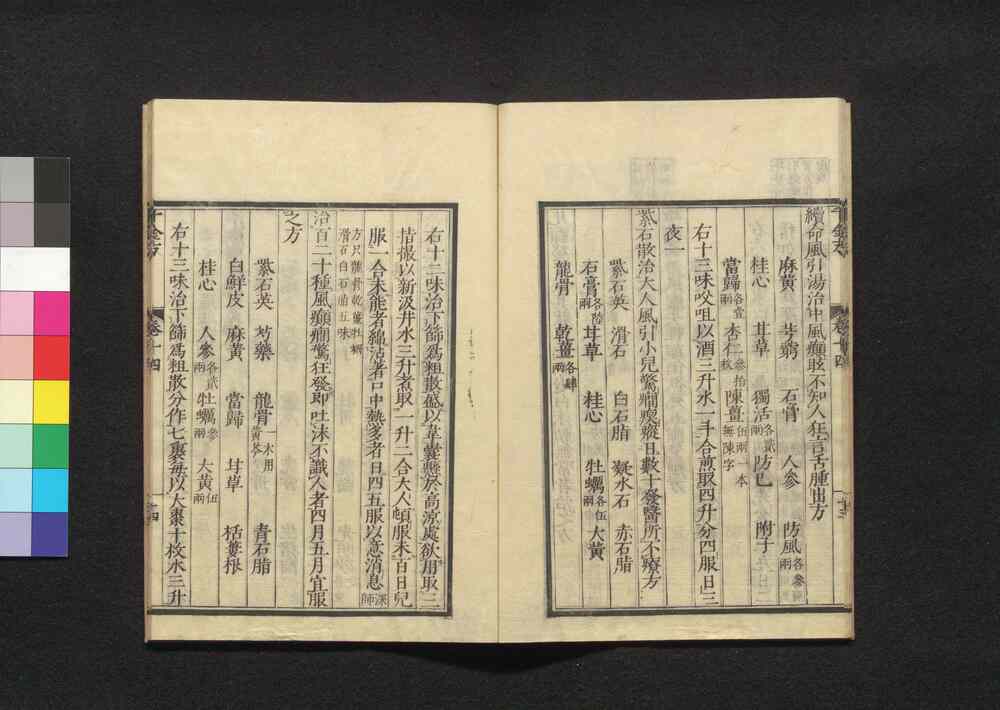 續命風引湯治中風癲眩不知人狂言舌腫出方
麻黃 芎藭 石膏 人參 防風各參兩
桂心 甘草 獨活各貳兩 防已 附子
當歸各壹兩 杏仁參拾枚 陳薑伍兩一本無陳字
右十三味㕮咀以酒三升水一斗合煎取四升分四服日三
夜一
紫石散治大人風引小兒驚癇瘈瘲日數十發醫所不療方
紫石英 滑石 白石脂 凝水石 赤石脂
石膏各陸兩 甘草 桂心 牡蠣各伍兩 大黃
龍骨 乾薑各肆兩
千金方
卷十四
右十二味治下篩爲粗散盛以韋囊懸於高涼處欲用取三
指撮以新汲井水三升煮取一升二合大人頓服未百日兒
服一合未能者綿沾著口中熱多者日四五服以意消息深師
方只龍骨乾薑牡蠣滑石白石脂五味
治百二十種風癲癇驚狂發即吐沫不識人者四月五月宜服
之方
紫石英 芍藥 龍骨一本用黃芩 青石脂
白鮮皮 麻黃 當歸 甘草 栝蔞根
桂心 人參各貳兩 牡蠣參兩 大黃伍兩
右十三味治下篩爲粗散分作七裹每以大棗十枚水三升
千金方
卷十四